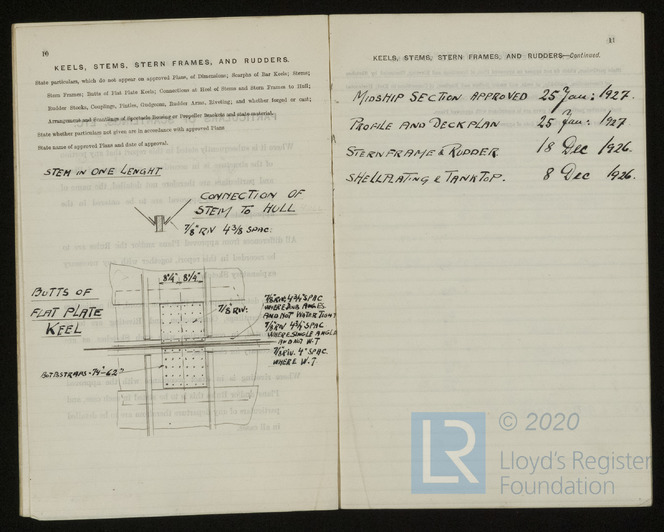 10
KEELS, STEMS, STERN FRAMES, AND RUDDERS.
State particulars, which do not appear on approved Plans, of Dimensions; Scarphs of Bar Keels; Stems;
Stern Frames; Butts of Flat Plate Keels; Connections at Keel of Stems and Stern Frames to Hull;
Rudder Stocks, Couplings, Pintles, Gudgeons, Rudder Arms, Riveting; and whether forged or cast;
Arrangements and Scantlings of Spectacle Bossing or Propeller Brackets and state material.
State whether particulars not given are in accordance with approved Plans
State name of approved Plans and date of approval.
STEM IN ONE LENGHT
CONNECTION OF
STEM TO HULL
7/8" RIV 4 3/8 SPAC.
BUTTS OF
FLAT PLATE
KEEL
8¼" 8¼"
7/8 RIV.
7/8 RIV. 4¾" SPAC
WHERE DOUB ANGLES
AND NOT WATERTIGHT
7/8" RIV 4¾" SPAC
WHERE SINGLE ANGLE
AND NOT W.T
7/8 RIV. 4" SPAC.
WHERE W.T
11
KEELS, STEMS, STERN FRAMES, AND RUDDERS—Continued.
MIDSHIP SECTION APPROVED 25 Jan: 1927.
PROFILE AND DECK PLAN 25 Jan: 1927
STERNFRAME & RUDDER 18 Dec 1926.
SHELLPLATING & TANKTOP. 8 Dec 1926.
LR
© 2020
Lloyd's Register
Foundation